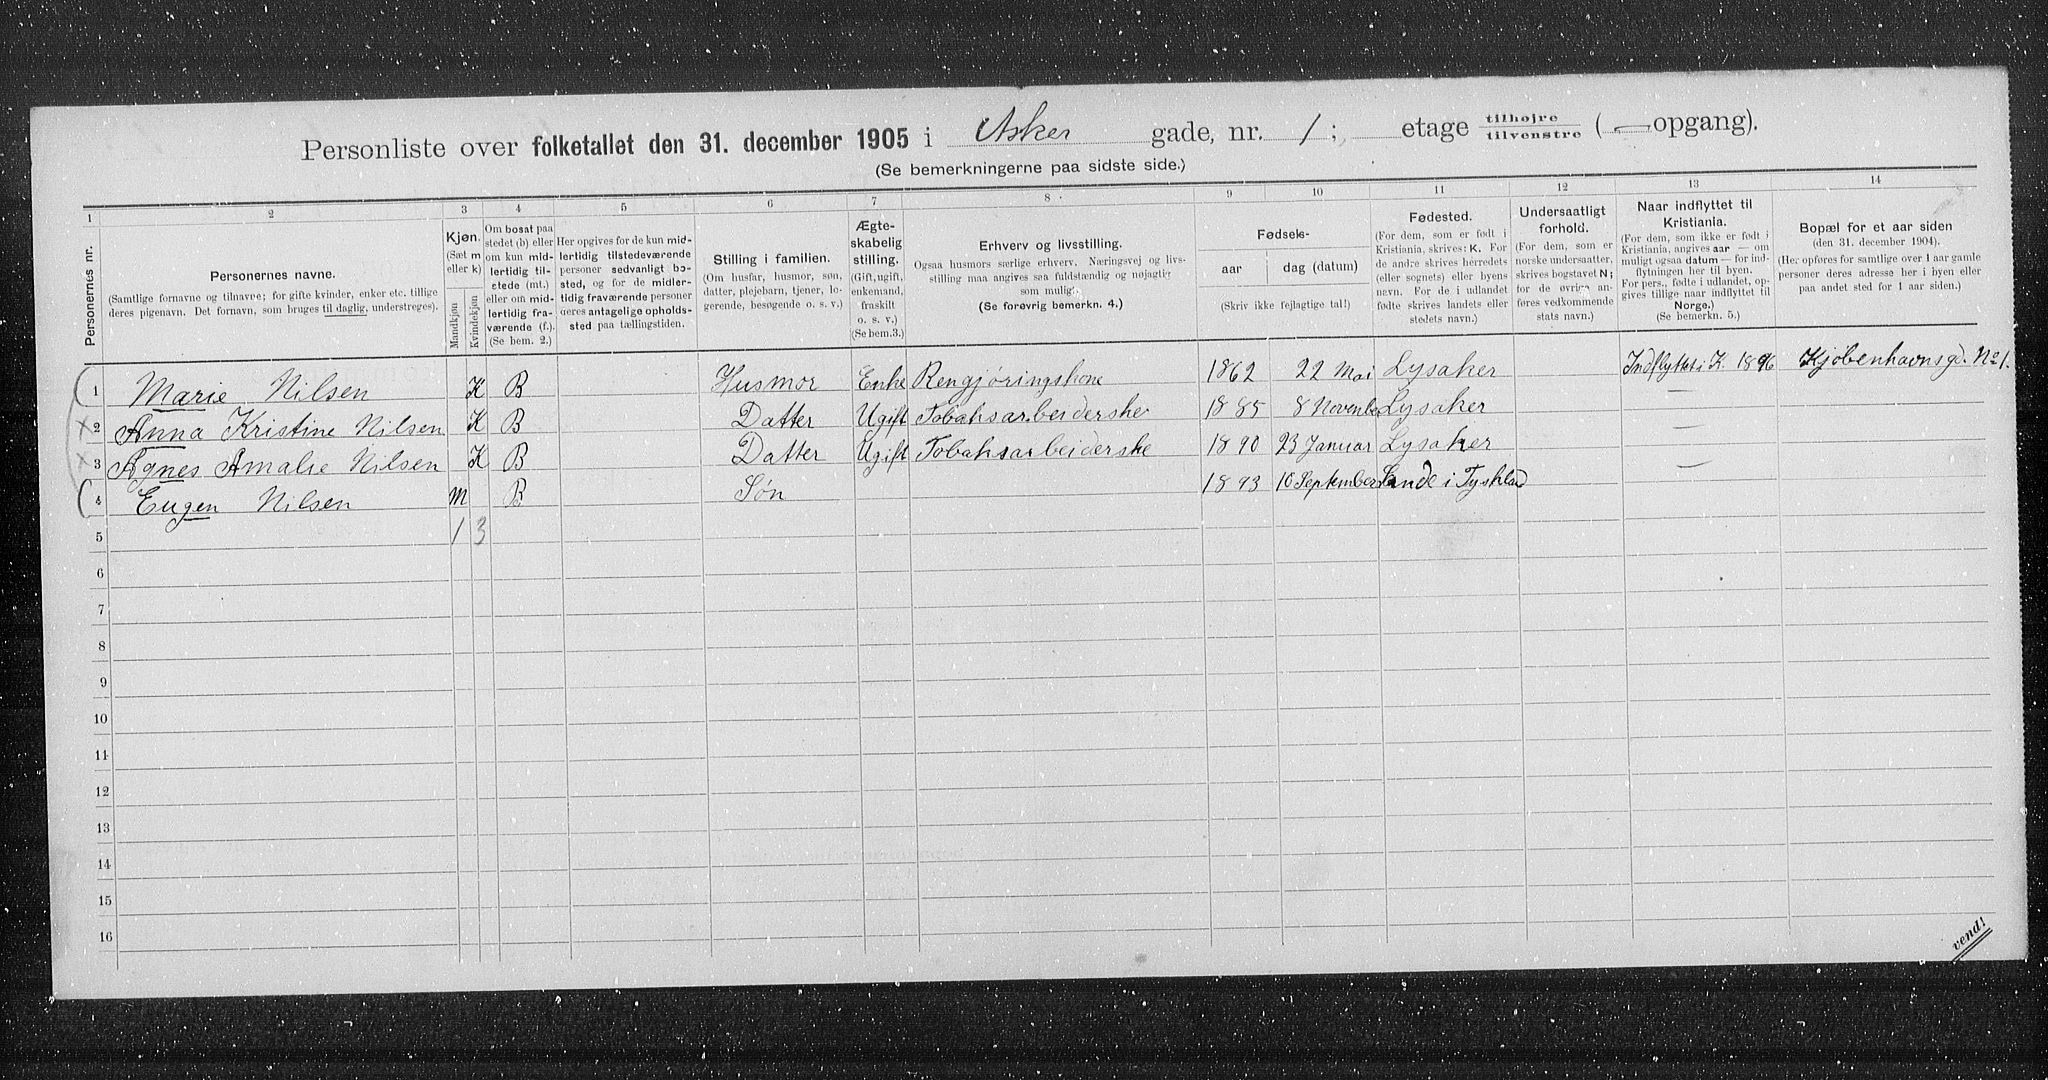 Personliste over folketallet den 31. december 1905 i Asker gade, nr. 1 ; etage tilhøjre tilvenstre ( — opgang).
(Se bemerkningerne paa sidste side.)
1 2 3 4 5 6 7 8 9 10 11 12 13 14
Personernes nr.
Personernes navne.
(Samtlige fornavne og tilnavne; for gifte kvinder, enker etc. tillige
deres pigenavn. Det fornavn, som bruges til daglig, understreges).
Kjøn.
(Sæt m
eller k)
Mandkjøn
Kvindekjøn
Om bosat paa
stedet (b) eller
om kun mid-
lertidig til-
stede (mt.)
eller om mid-
lertidig fra-
værende (f.).
(Se bem. 2.)
Her opgives for de kun mid-
lertidig tilstedeværende
personer sedvanligt bo-
sted, og for de midler-
tidig fraværende personer
deres antagelige opholds-
sted paa tællingstiden.
Stilling i familien.
(Om husfar, husmor, søn,
datter, plejebarn, tjener, lo-
gerende, besøgende o. s. v.)
Ægte-
skabelig
stilling.
(Gift, ugift,
enkemand,
fraskilt
o. s. v.)
(Se bem. 3.)
Erhverv og livsstilling.
Ogsaa husmors særlige erhverv. Næringsvej og livs-
stilling maa angives saa fuldstændig og nøjagtig
som muligt.
(Se forøvrig bemerkn. 4.)
Fødsels-
aar
dag (datum)
(Skriv ikke fejlagtige tal!)
Fødested.
(For dem, som er født i
Kristiania, skrives: K. For
de andre skrives herredets
(eller sognets) eller byens
navn. For de i udlandet
fødte skrives landets eller
stedets navn.)
Undersaatligt
forhold.
(For dem, som er
norske undersaatter,
skrives bogstavet N;
for de øvrige an-
føres vedkommende
stats navn.)
Naar indflyttet til
Kristiania.
(For dem, som ikke er født i
Kristiania, angives aar — om
muligt ogsaa datum — for ind-
flytningen her til byen.
For pers., fødte i udlandet, op-
gives tillige naar indflyttet til
Norge.)
(Se bemerkn. 5.)
Bopæl for et aar siden
(den 31. december 1904).
(Her opføres for samtlige over 1 aar gamle
personer deres adresse her i byen eller
paa andet sted for 1 aar siden.)
1 Marie Nilsen K B Husmor Enke Rengjøringskone 1862 22 Mai Lysaker Indflyttet i K. 1896 Kjøbenhavnsgd. No 1.
2 Anna Kristine Nilsen K B Datter Ugift Tobaksarbeiderske 1885 8 Novenber Lysaker —
3 Agnes Amalie Nilsen K B Datter Ugift Tobaksarbeiderske 1890 23 Januar Lysaker —
4 Eugen Nilsen M B Søn 1893 10 September i —
5 1 3
6
7
8
9
10
11
12
13
14
15
16
vend!